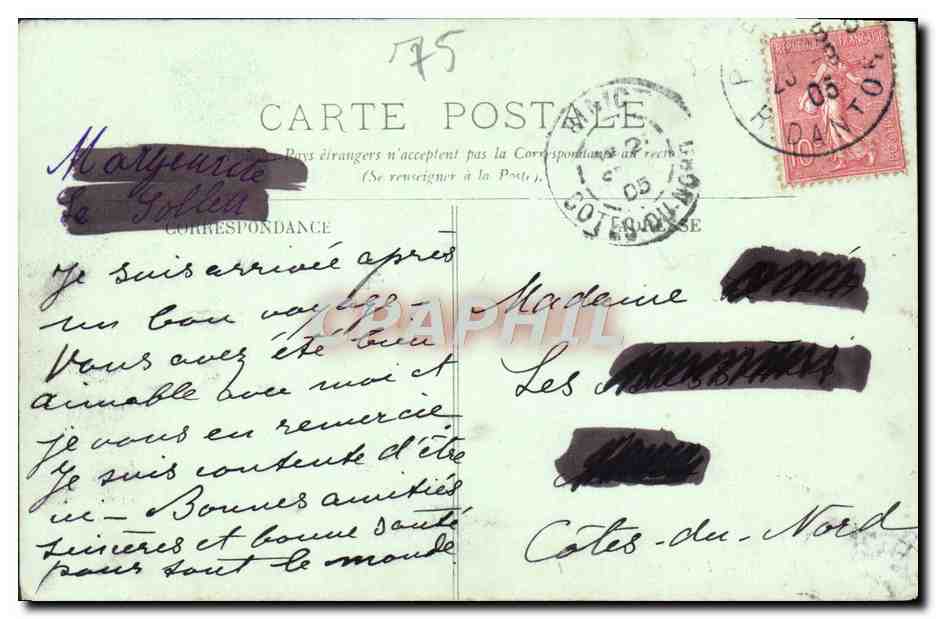 75
CARTE POSTALE
Pays étrangers n'acceptent pas la Correspondance au recto
(Se renseigner à la Poste).
Marguerite
CORRESPONDANCE
ADRESSE
RÉPUBLIQUE FRANÇAISE
10
05
R. DANTON
BINIC
05
COTES-DU-NORD
Je suis arrivée après
un bon voyage -
Vous avez été bien
aimable avec moi et
je vous en remercie
Je suis contente d'être
ici - Bonnes amitiés
sincères et bonne santé
pour tout le monde
Madame
Les
Côtes-du-Nord
CPAPHIL